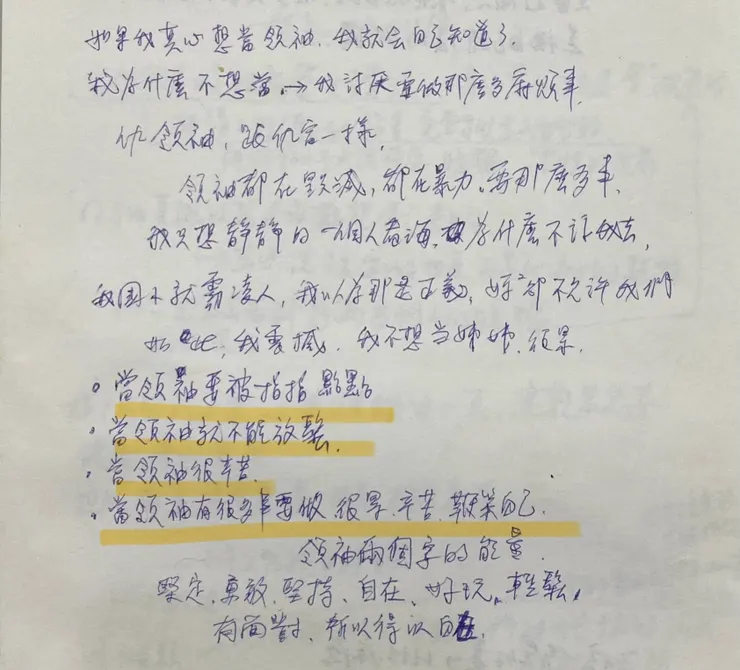 如果我真心想當領袖、我就会自己知道了、
我為什麼不想當 → 我討厌要做那麼多麻煩事、
仇領袖，跟仇官一樣，
領袖都在毀滅，都在暴力。要那麼多事、
我只想靜靜的一個人看海，為什麼不让我去，
我國小就霸凌人，我以為那是正義，媽媽卻不允許我們
如此，我震撼、我不想当姊姊、很累、
。當領袖要被指指點點
．當領袖就不能放鬆、
．當領袖很辛苦、
．當領袖有很多事要做、很累、辛苦、鞭策自己、
領袖兩個字的能量、
堅定、勇敢、堅持、自在、好玩、輕鬆，
有面對、所以得以自在、